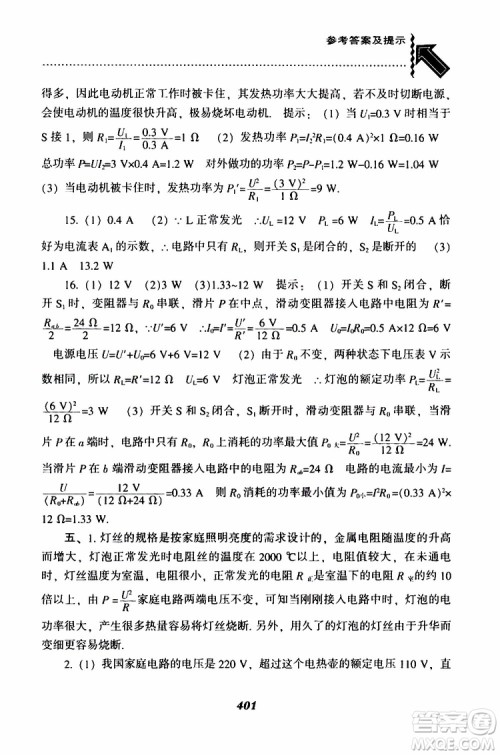 参考答案及提示
得多，因此电动机正常工作时被卡住，其发热功率大大提高，若不及时切断电源，
会使电动机的温度很快升高，极易烧坏电动机. 提示：(1) 当 U₁=0.3 V 时
S 接 1，则 R₁=U₁/I₁=0.3 V/0.3 A=1 Ω (2) 发热功率 P₁=I²R₁=(0.4 A)²×1 Ω=0.16 W
总功率 P=UI₂=3 V×0.4 A=1.2 W 对外做功的功率 P₂=P-P₁=1.2 W-0.16 W=1.04 W
(3) 当电动机被卡住时，发热功率 P₁′=U²/R₁=(3 V)²/1 Ω=9 W.
15. (1) 0.4 A (2) ∵ L 正常发光 ∴U_L=12 V P_L=6 W I_L=P_L/U_L=0.5 A 恰
好为电流表 A₁ 的示数，∴电路中只有 R_L，开关 S₁ 是闭合的，S₂ 是断开的 (3)
1.1 A 13.2 W
16. (1)12 V (2)3 W (3)1.33~12 W 提示：(1) 开关 S 和 S₂ 闭合，断
开 S₁ 时，变阻器与 R₀ 串联，滑片 P 在中点，滑动变阻器接入电路中电阻 R′=
R_ab/2=24 Ω/2=12 Ω，∵U′=6 V ∴I=U′/R′=6 V/12 Ω=0.5 A U₀=IR₀=0.5 A×12 Ω=6 V
电源电压 U=U′+U₀=12 V (2) 由于 R₀ 不变，两种状态下电压表示
数相同，所以 R_L=R′=12 Ω，U_L=U′=6 V，灯泡正常发光 ∴灯泡的额定功率 P_L=U_L²/R_L=
(6 V)²/12 Ω=3 W (3) 开关 S 和 S₂ 闭合，断开 S₁ 时，滑动变阻器与 R₀ 串联，当滑
片 P 在 a 端时，电路中只有 R₀，R₀ 消耗的功率最大 P₀大=U²/R₀=(12 V)²/12 Ω=12 W.
当滑片 P 在 b 端滑动变阻器接入电路中电阻是 R_ab=24 Ω，电路的电流最小 I=
U/(R₀+R_ab)=12 V/(12 Ω+24 Ω)=0.33 A，则 R₀ 消耗的功率 P₀小=I²R₀=(0.33 A)²×
12 Ω=1.33 W.
五、1. 灯丝的规格是按家庭照明亮度的需求设计的，金属电阻随温度的升高
而增大，灯泡正常发光时电阻丝的温度大约在 2000 ℃以上，因此，在未通电
时，灯丝温度为室温，电阻很小，在室温下的电阻约为正常发光时电阻的 1/10
倍，根据 P=U²/R 家庭电路两端电压不变，可知当刚刚接入电路时灯泡消耗的
实际功率最大，产生很多热量容易将灯丝烧断. 用久了的灯泡由于升华而
变细更容易烧断.
2. (1) 我国家庭电路的电压是 220 V，这个电热壶的额定电压 110 V，直
401